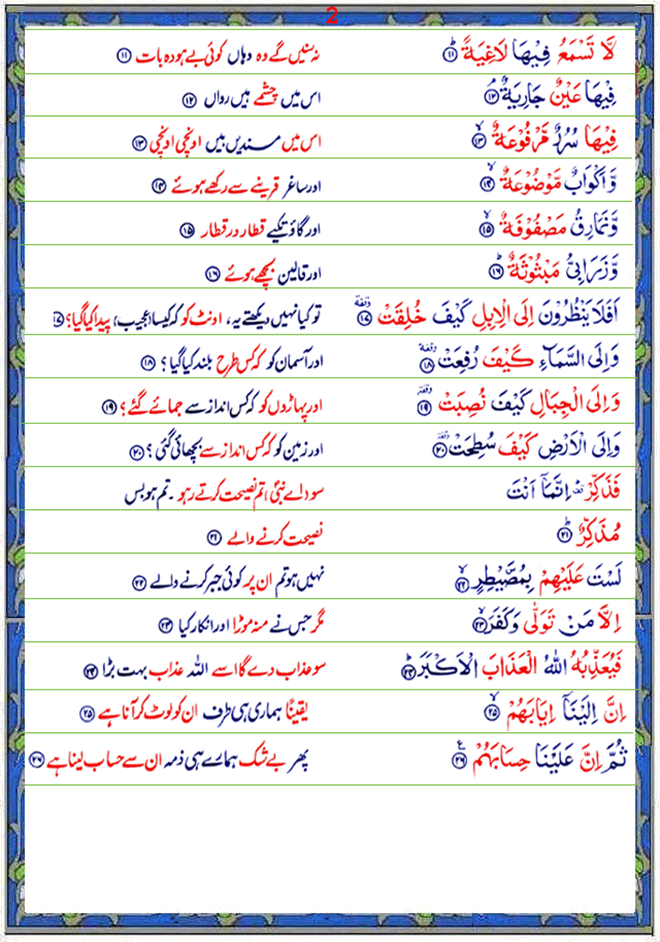 2
لَّا تَسْمَعُ فِيْهَا لَاغِيَةً ۝۱۱ نہ سنیں گے وہ وہاں کوئی بے ہودہ بات ۝۱۱
فِيْهَا عَيْنٌ جَارِيَةٌ ۝۱۲ اس میں چشمے ہیں رواں ۝۱۲
فِيْهَا سُرُرٌ مَّرْفُوْعَةٌ ۝۱۳ اس میں مسندیں ہیں اونچی اونچی ۝۱۳
وَّاَكْوَابٌ مَّوْضُوْعَةٌ ۝۱۴ اور ساغر قرینے سے رکھے ہوئے ۝۱۴
وَّنَمَارِقُ مَصْفُوْفَةٌ ۝۱۵ اور گاؤ تکیے قطار در قطار ۝۱۵
وَّزَرَابِيُّ مَبْثُوْثَةٌ ۝۱۶ اور قالین بچھے ہوئے ۝۱۶
اَفَلَا يَنْظُرُوْنَ اِلَى الْاِبِلِ كَيْفَ خُلِقَتْ ۝۱۷ تو کیا نہیں دیکھتے یہ، اونٹ کو کہ کیسا (عجیب) پیدا کیا گیا؟ ۝۱۷
وَاِلَى السَّمَآءِ كَيْفَ رُفِعَتْ ۝۱۸ اور آسمان کو کہ کس طرح بلند کیا گیا؟ ۝۱۸
وَاِلَى الْجِبَالِ كَيْفَ نُصِبَتْ ۝۱۹ اور پہاڑوں کو کہ کس انداز سے جمائے گئے؟ ۝۱۹
وَاِلَى الْاَرْضِ كَيْفَ سُطِحَتْ ۝۲۰ اور زمین کو کہ کس انداز سے بچھائی گئی؟ ۝۲۰
فَذَكِّرْ اِنَّمَآ اَنْتَ سو (اے نبیؐ) تم نصیحت کرتے رہو۔ تم ہو بس
مُذَكِّرٌ ۝۲۱ نصیحت کرنے والے ۝۲۱
لَسْتَ عَلَيْهِمْ بِمُصَۜيْطِرٍ ۝۲۲ نہیں ہو تم ان پر کوئی جبر کرنے والے ۝۲۲
اِلَّا مَنْ تَوَلّٰى وَكَفَرَ ۝۲۳ مگر جس نے منہ موڑا اور انکار کیا ۝۲۳
فَيُعَذِّبُهُ اللّٰهُ الْعَذَابَ الْاَكْبَرَ ۝۲۴ سو عذاب دے گا اسے اللہ عذاب بہت بڑا ۝۲۴
اِنَّ اِلَيْنَآ اِيَابَهُمْ ۝۲۵ یقیناً ہماری ہی طرف ان کو لوٹ کر آنا ہے ۝۲۵
ثُمَّ اِنَّ عَلَيْنَا حِسَابَهُمْ ۝۲۶ پھر بے شک ہمارے ہی ذمہ ان سے حساب لینا ہے ۝۲۶